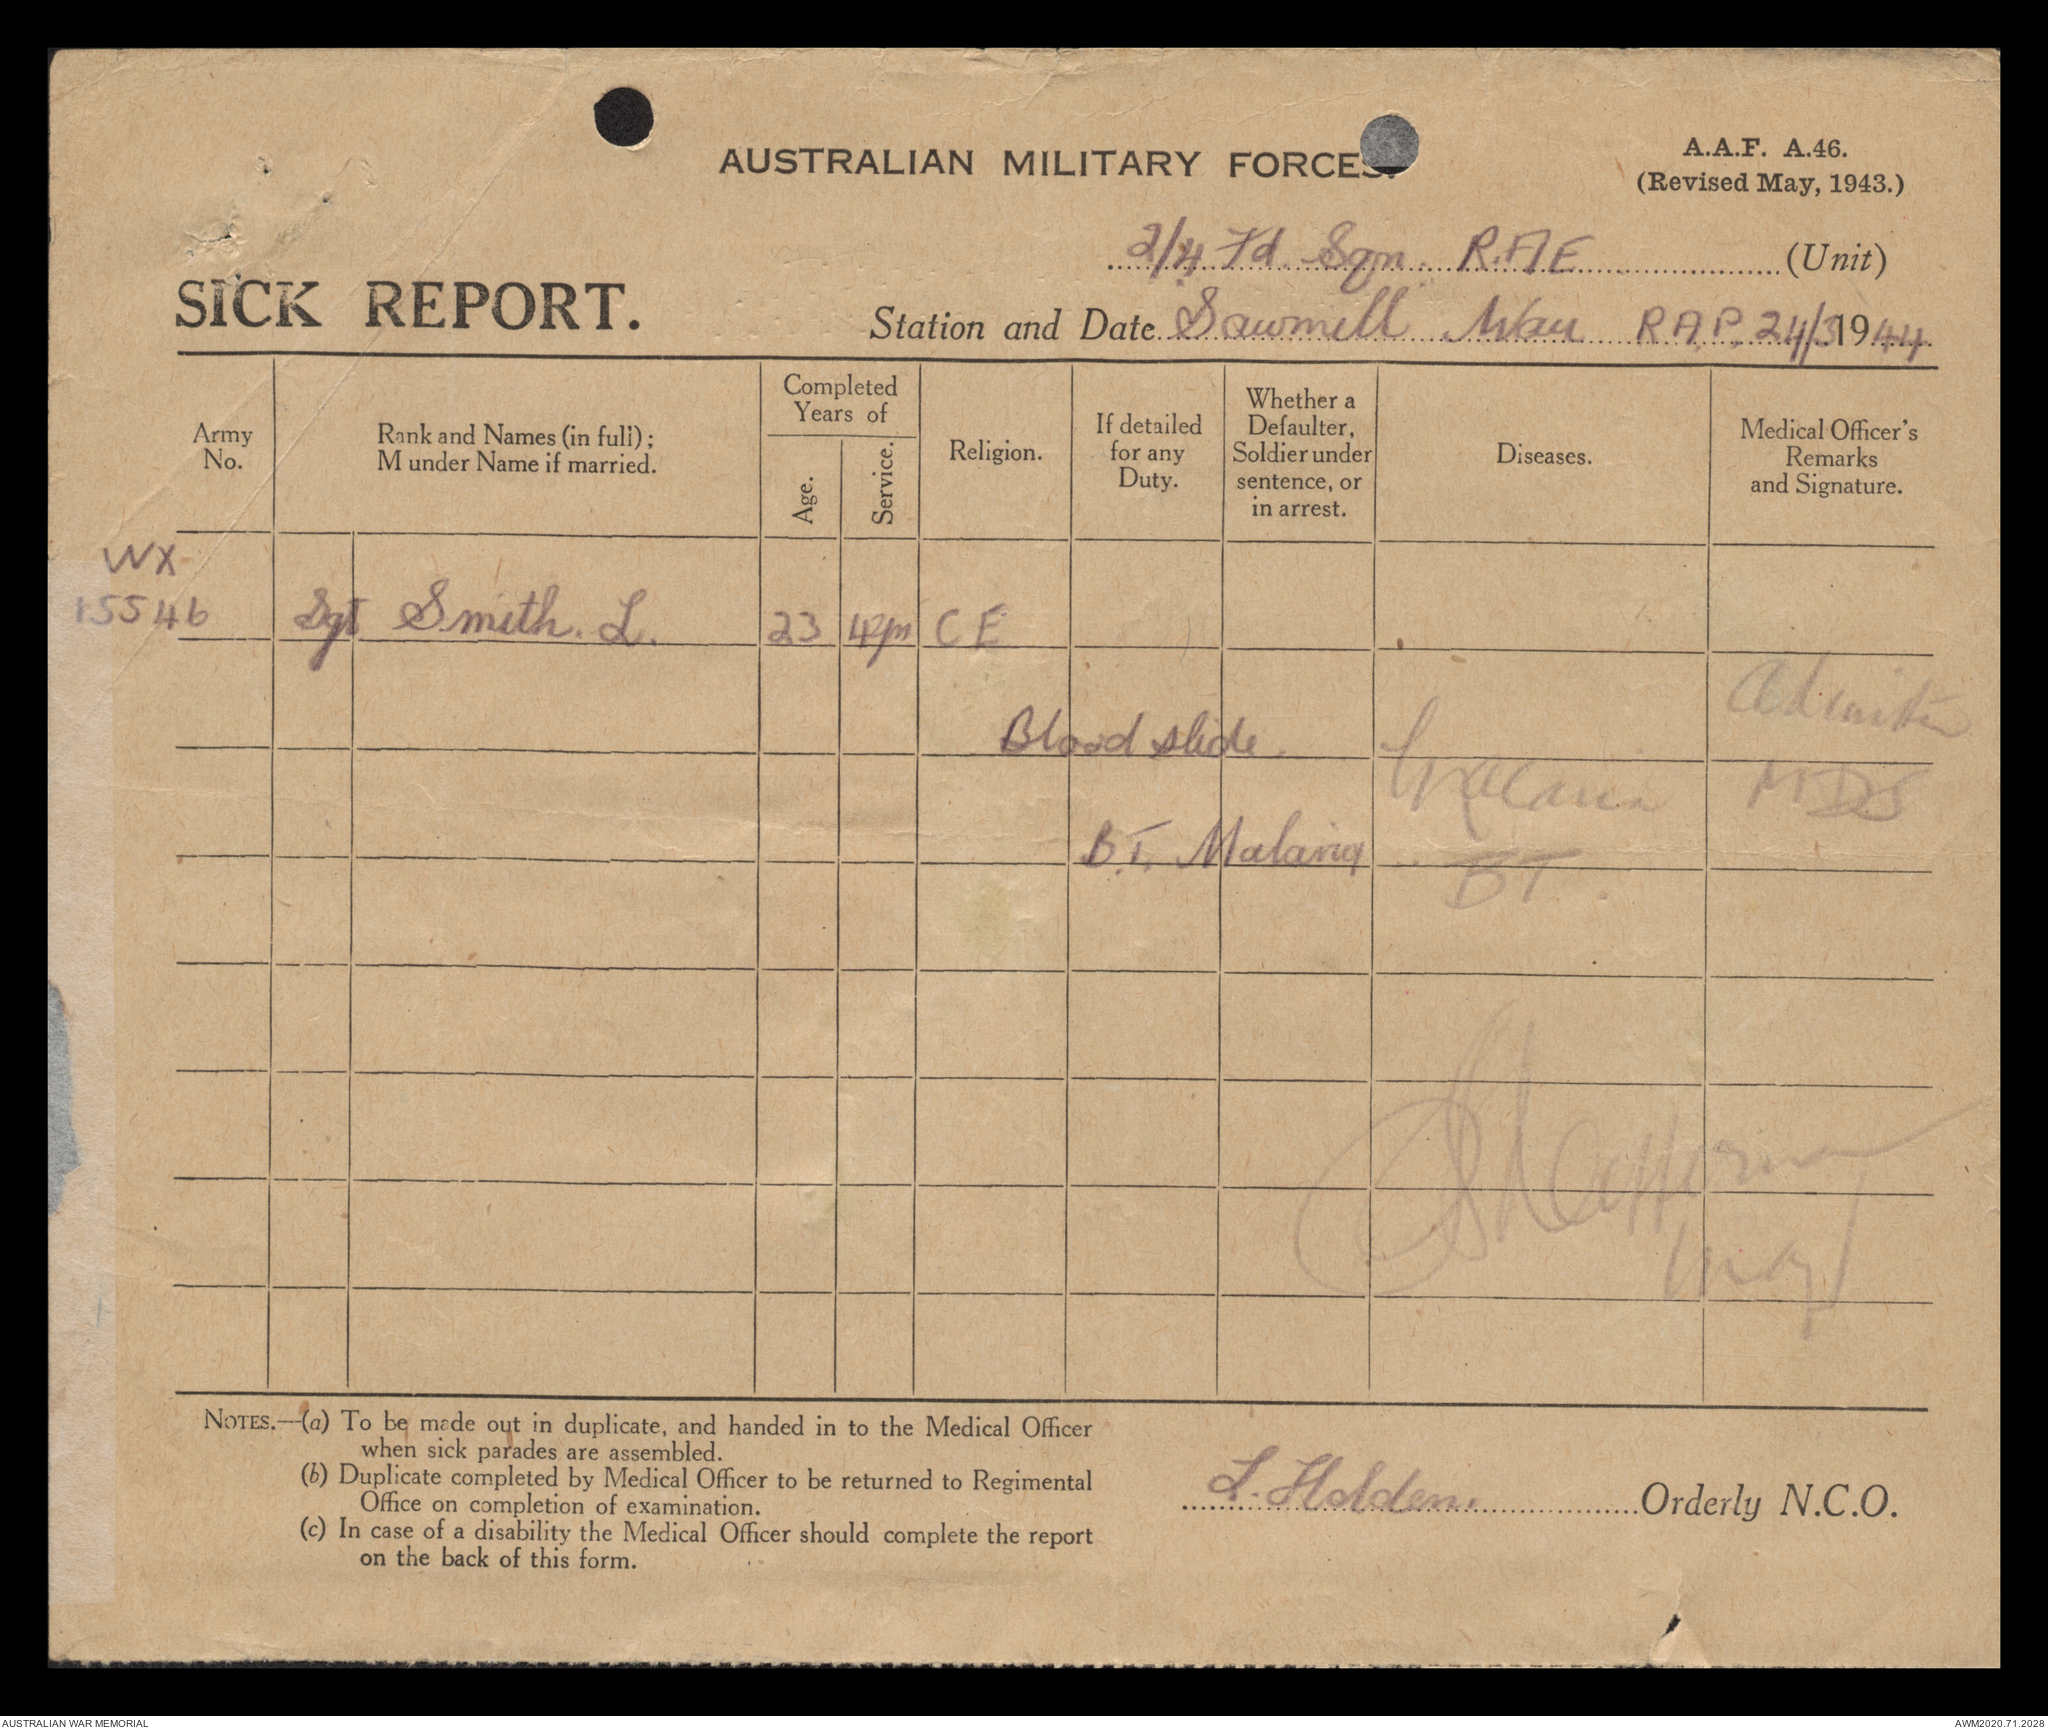 AUSTRALIAN MILITARY FORCES.
A.A.F. A.46.
(Revised May, 1943.)
2/4 Fd. Sqn. R.A.E (Unit)
SICK REPORT.
Station and Date Sawmill Wau R.A.P. 24/3 1944
Army No.
Rank and Names (in full) ;
M under Name if married.
Completed Years of
Age.
Service.
Religion.
If detailed for any Duty.
Whether a Defaulter, Soldier under sentence, or in arrest.
Diseases.
Medical Officer's Remarks and Signature.
WX
15546 Sgt Smith. L. 23 CE
Blood slide.
Malaria
MDS
B.T. Malaria
BT.
Maj
NOTES.—(a) To be made out in duplicate, and handed in to the Medical Officer
when sick parades are assembled.
(b) Duplicate completed by Medical Officer to be returned to Regimental
Office on completion of examination.
(c) In case of a disability the Medical Officer should complete the report
on the back of this form.
L. Holden. Orderly N.C.O.
AUSTRALIAN WAR MEMORIAL
AWM2020.71.2028